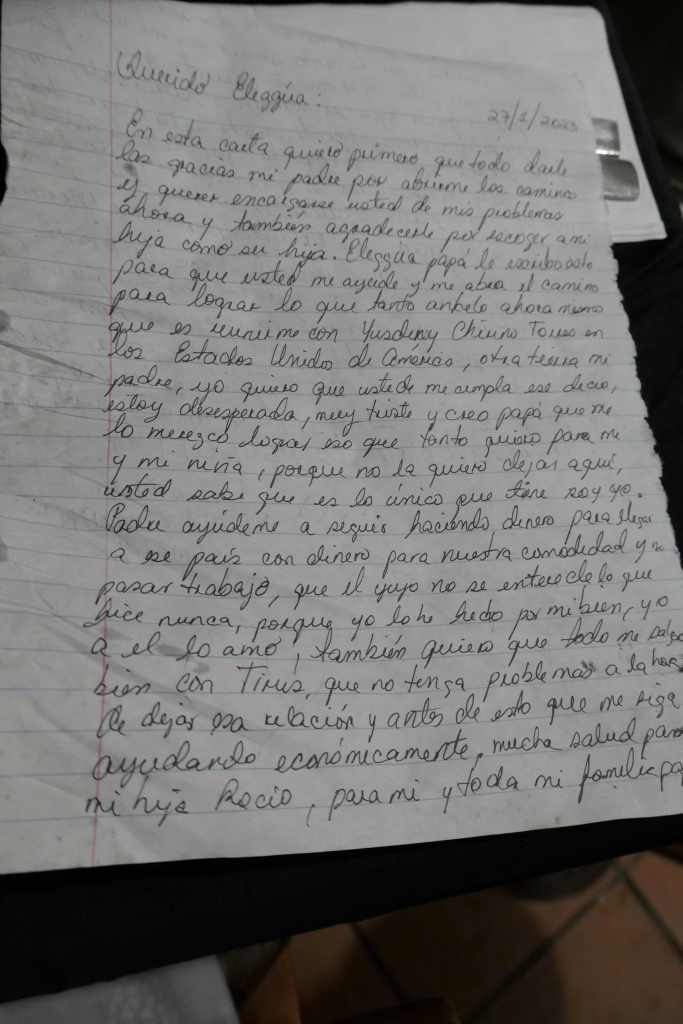 Querido Eleggúa:
27/1/2023
En esta carta quiero primero que todo darle
las gracias mi padre por abrirme los caminos
y querer encargarse usted de mis problemas
ahora y también agradecerle por escoger a mi
hija como su hija. Eleggúa papá le escribo esto
para que usted me ayude y me abra el camino
para lograr lo que tanto anhelo ahora mismo
que es reunirme con Yusdeny Chirino Torres en
los Estados Unidos de América, otra tierra mi
padre, yo quiero que usted me cumpla ese deceo,
estoy desesperada, muy triste y creo papá que me
lo merezco lograr eso que tanto quiero para me
y mi niña, porque no la quiero dejar aquí,
usted sabe que es lo único que tiene soy yo.
Padre ayúdeme a seguir haciendo dinero para llegar
a ese país con dinero para nuestra comodidad y no
pasar trabajo, que el yuyo no se entere de lo que
hice nunca, porque yo lo he hecho por mi bien, yo
a el lo amo, también quiero que todo me salga
bien con Tirus, que no tenga problemas a la hora
de dejar esa relación y antes de esto que me siga
ayudando económicamente, mucha salud para
mi hija Rocio, para mi y toda mi familia pa